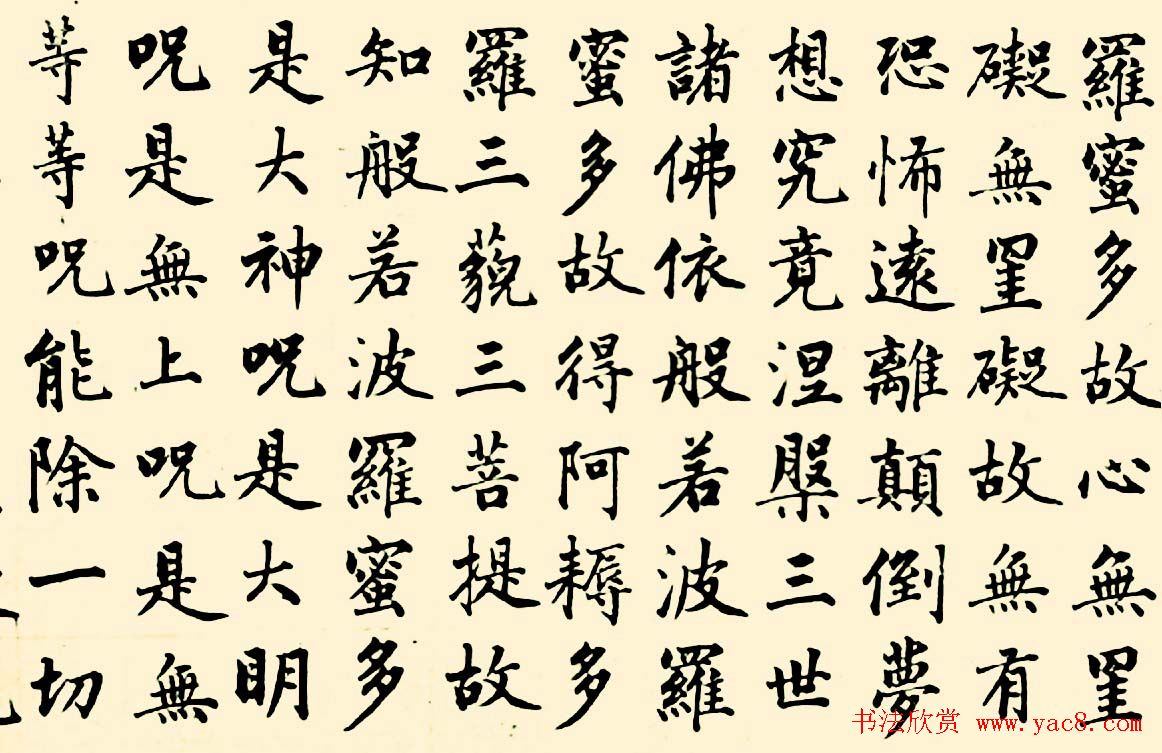 羅蜜多故心無罣
礙無罣礙故無有
恐怖遠離顛倒夢
想究竟涅槃三世
諸佛依般若波羅
蜜多故得阿耨多
羅三藐三菩提故
知般若波羅蜜多
是大神呪是大明
呪是無上呪是無
等等呪能除一切
书法欣赏 www.yac8.com